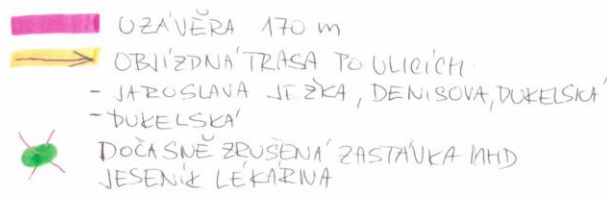 UZÁVĚRA 170 m
OBJÍZDNÁ TRASA PO ULICÍCH:
- JAROSLAVA JEŽKA, DENISOVA, DUKELSKÁ
- DUKELSKÁ
DOČASNĚ ZRUŠENÁ ZASTÁVKA MHD
JESENÍK LÉKÁRNA